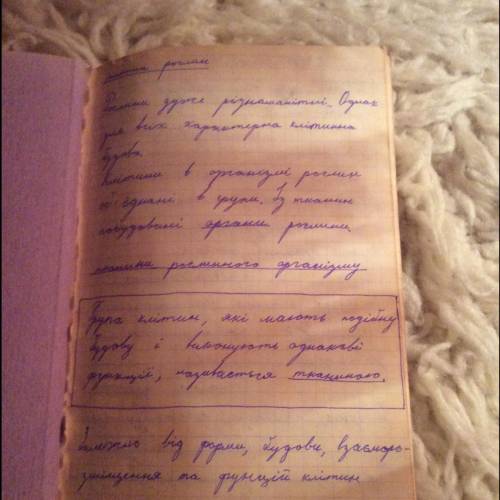 рослин
Рослини дуже різноманітні. Однак
для всіх характерна клітинна
будова.
Клітини в організмі рослин
об'єднані в групи. Із тканин
побудовані органи рослини.
Тканини рослинного організму
Група клітин, які мають подібну
будову і виконують однакові
функції, називається тканиною.
Залежно від форми, будови, взаєморо-
зміщення та функцій клітин